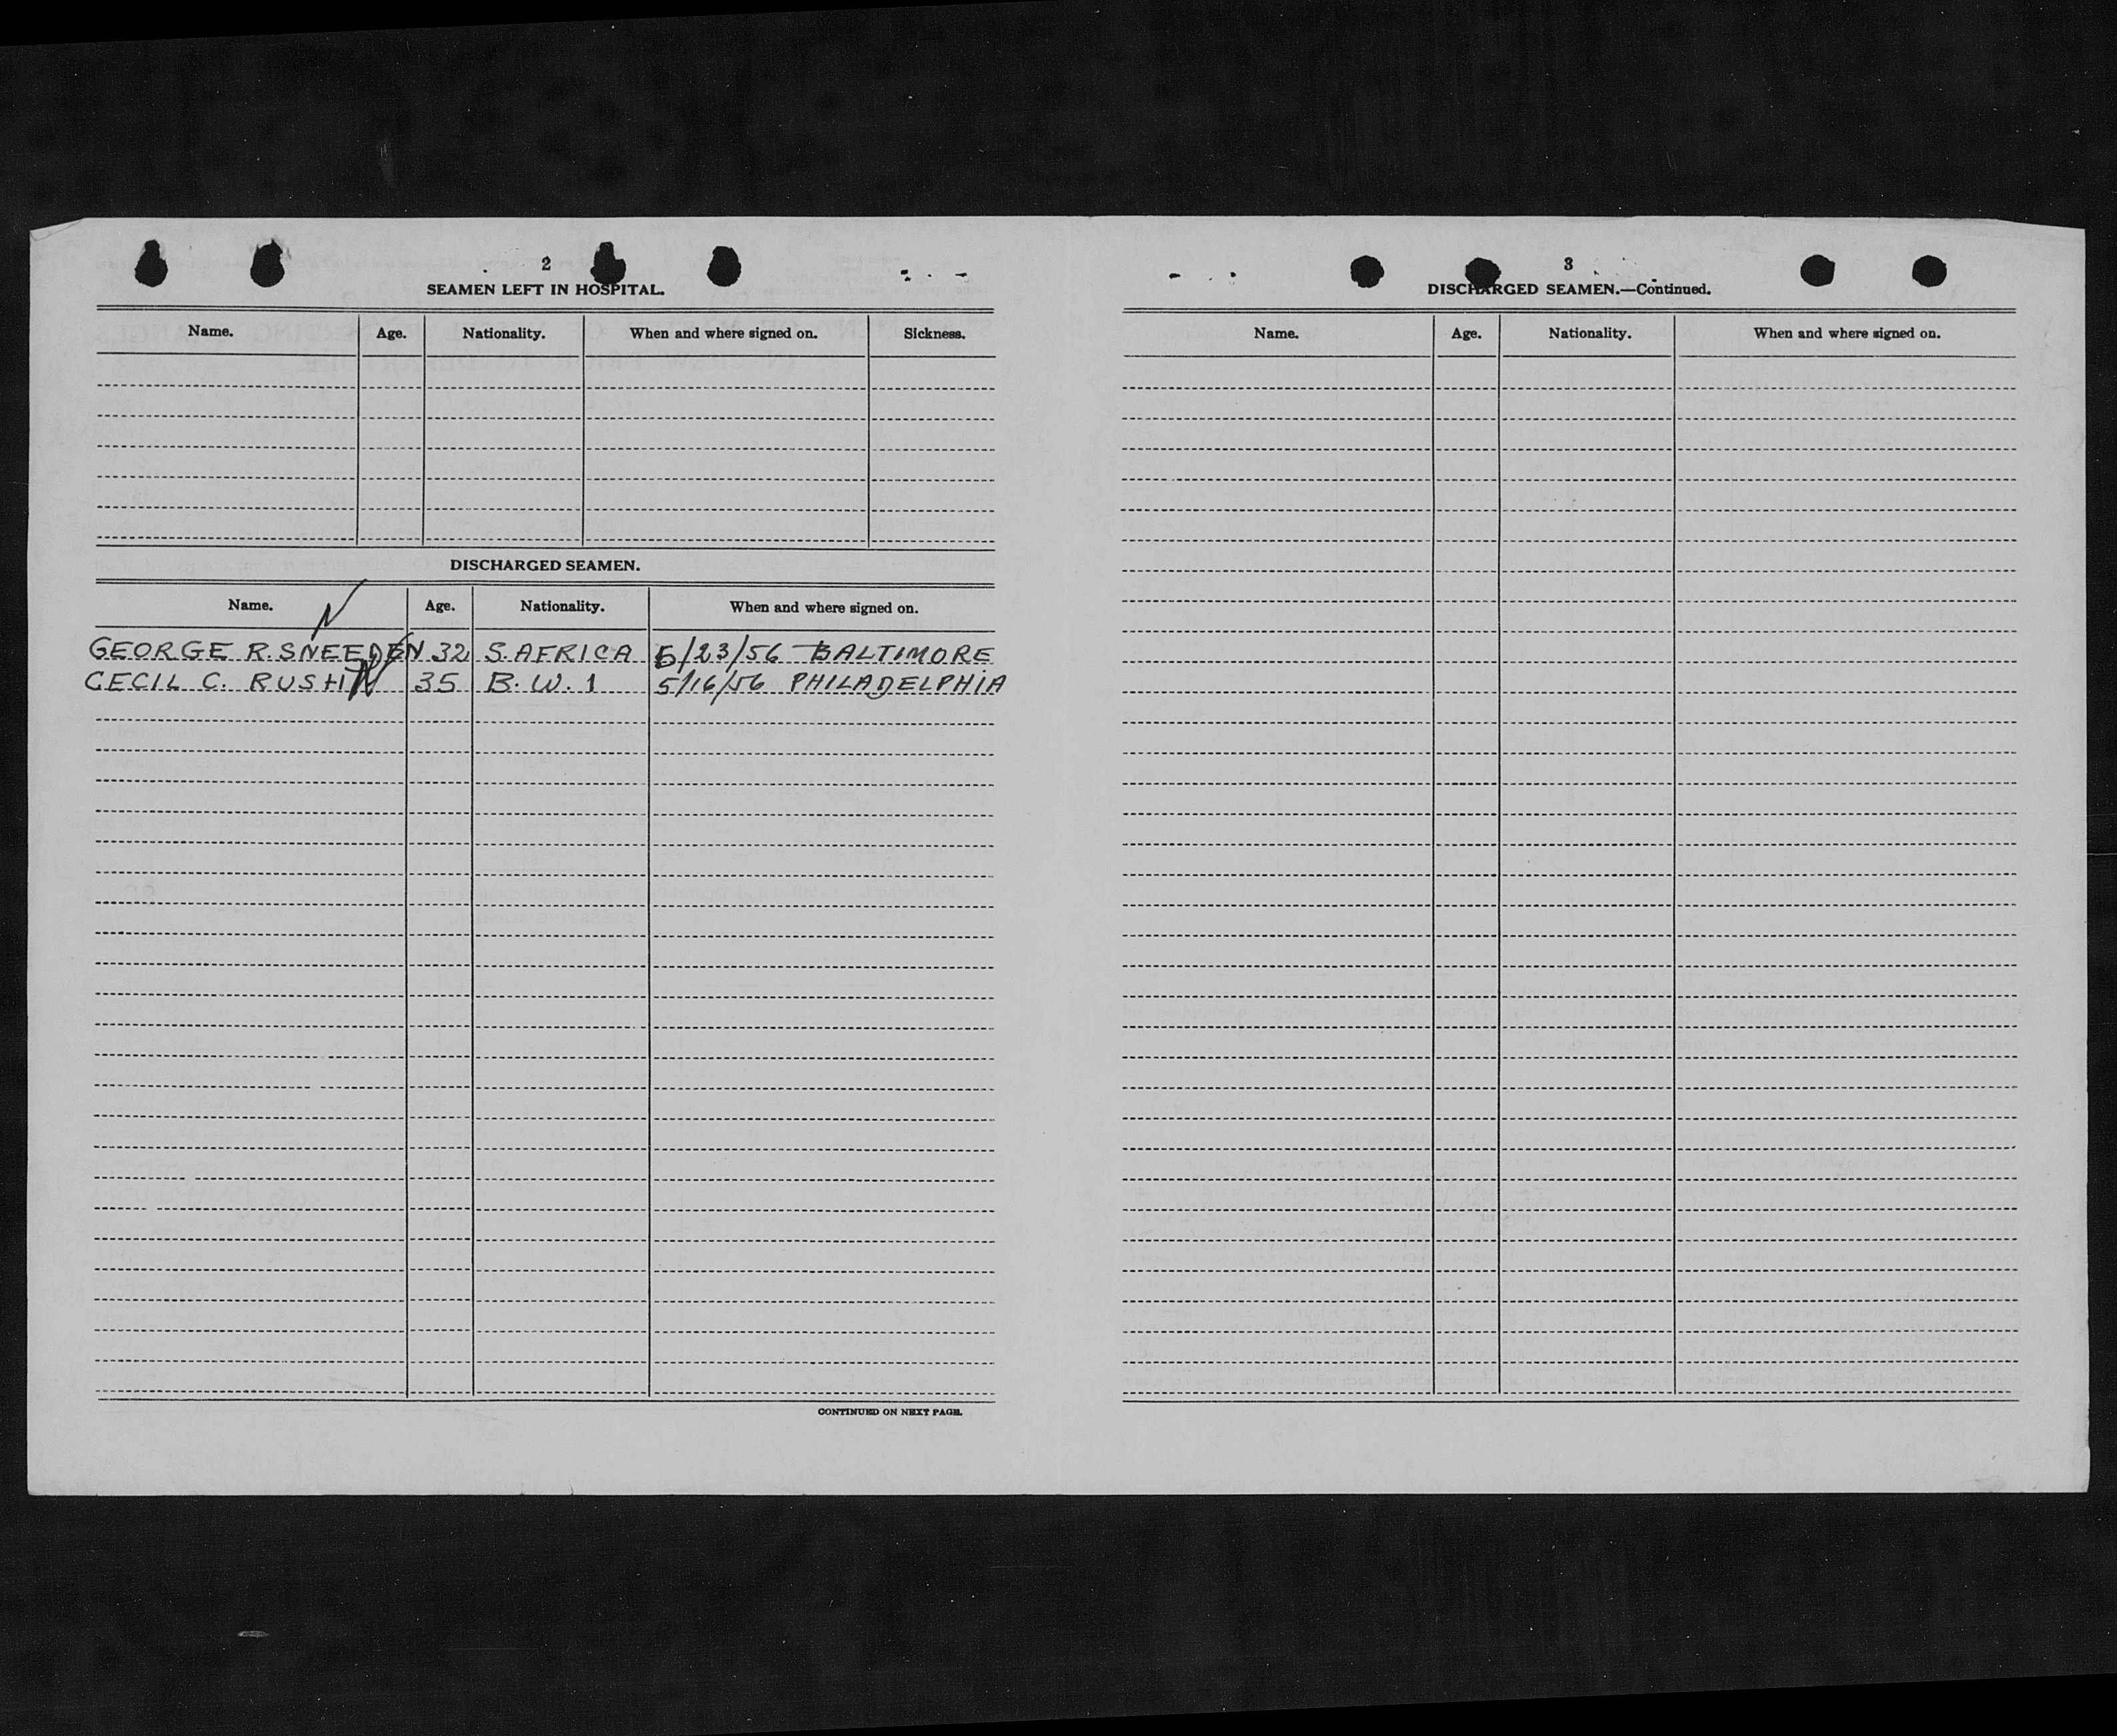 2
SEAMEN LEFT IN HOSPITAL.
Name. Age. Nationality. When and where signed on. Sickness.
DISCHARGED SEAMEN.
Name. Age. Nationality. When and where signed on.
GEORGE R. SNEEDEN 32 S. AFRICA 5/23/56 BALTIMORE
CECIL C. RUSH 35 B. W. I 5/16/56 PHILADELPHIA
CONTINUED ON NEXT PAGE.
3
DISCHARGED SEAMEN.—Continued.
Name. Age. Nationality. When and where signed on.